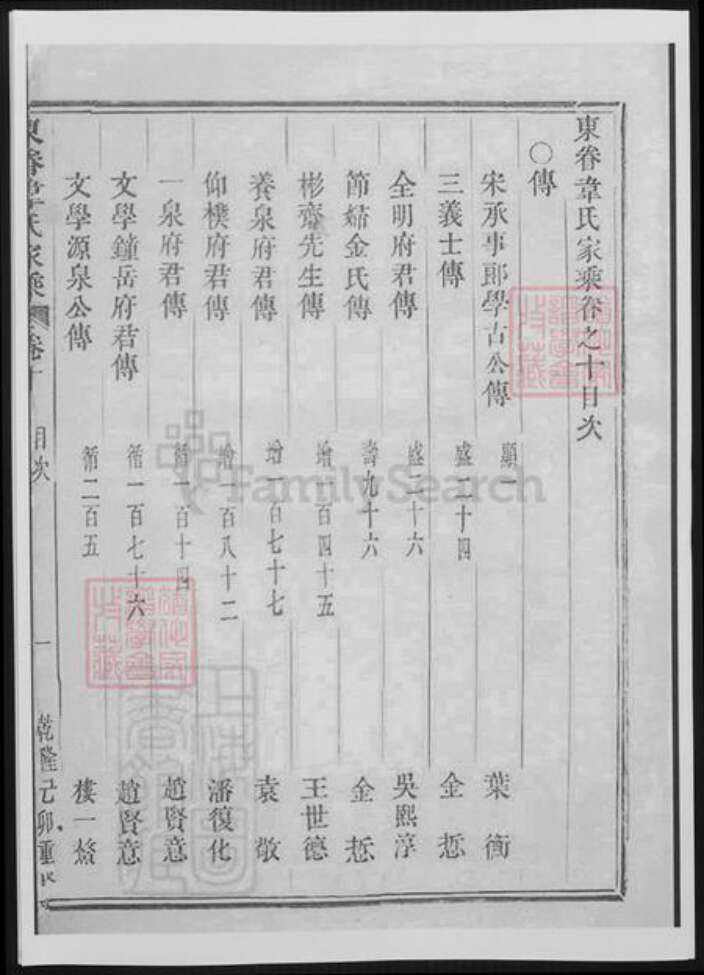 東眷韋氏家乘卷之十目次
○傳
宋承事郎學古公傳 顯一 葉衡
三義士傳 盛二十四 金悊
全明府君傳 盛二十六 吳熙淳
節婦金氏傳 壽九十六 金悊
彬齋先生傳 增一百四十五 王世德
養泉府君傳 增一百七十七 袁敬
仰樸府君傳 增一百八十二 潘復化
一泉府君傳 循一百十四 趙賢意
文學鐘岳府君傳 循一百七十六 趙賢意
文學源泉公傳 循二百五 樓一嶅
東眷韋氏家乘 卷十 目次 一 乾隆己卯重
FamilySearch